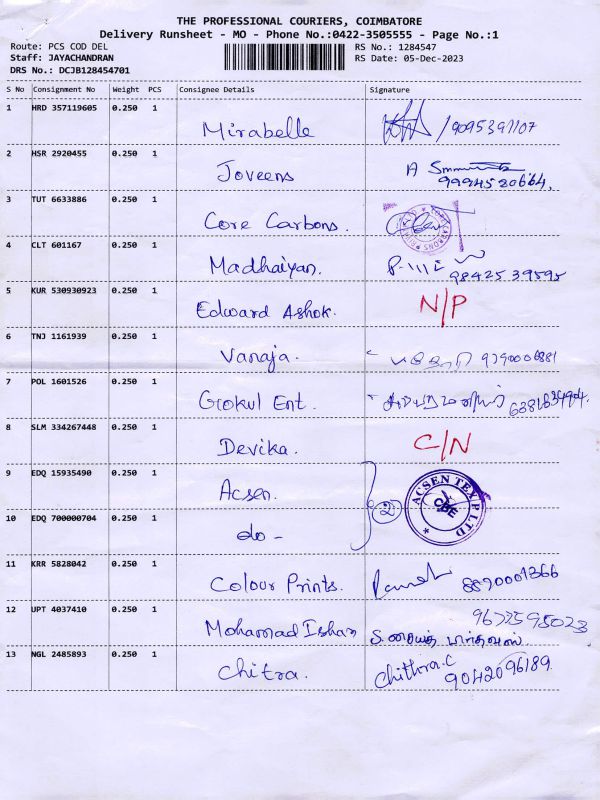 THE PROFESSIONAL COURIERS, COIMBATORE
Delivery Runsheet - MO - Phone No.:0422-3505555 - Page No.:1
Route: PCS COD DEL
RS No.: 1284547
Staff: JAYACHANDRAN
RS Date: 05-Dec-2023
DRS No.: DCJB128454701
S No Consignment No Weight PCS Consignee Details Signature
1 HRD 357119605 0.250 1 Mirabelle /9095391107
2 HSR 2920455 0.250 1 Joveens A 9994520664,
3 TUT 6633886 0.250 1 Core Carbons.
4 CLT 601167 0.250 1 Madhaiyan. 9842539595
5 KUR 530930923 0.250 1 Edward Ashok. N/P
6 TNJ 1161939 0.250 1 Vanaja.
7 POL 1601526 0.250 1 Gokul Ent.
8 SLM 334267448 0.250 1 Devika. C/N
9 EDQ 15935490 0.250 1 Acsen. 2 ACSEN TEX P LTD CBE
10 EDQ 700000704 0.250 1 do -
11 KRR 5828042 0.250 1 Colour Prints.
12 UPT 4037410 0.250 1 Mohamad Ishan
13 NGL 2485893 0.250 1 Chitra. Chithra.C 9042096189